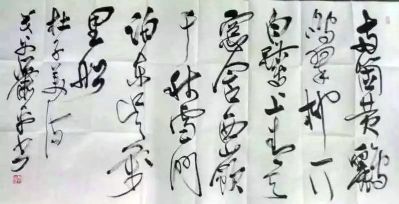 两箇黄鹂
鸣翠柳一行
白鹭上青天
窗含西岭
千秋雪门
泊东吴万
里船
杜子美诗